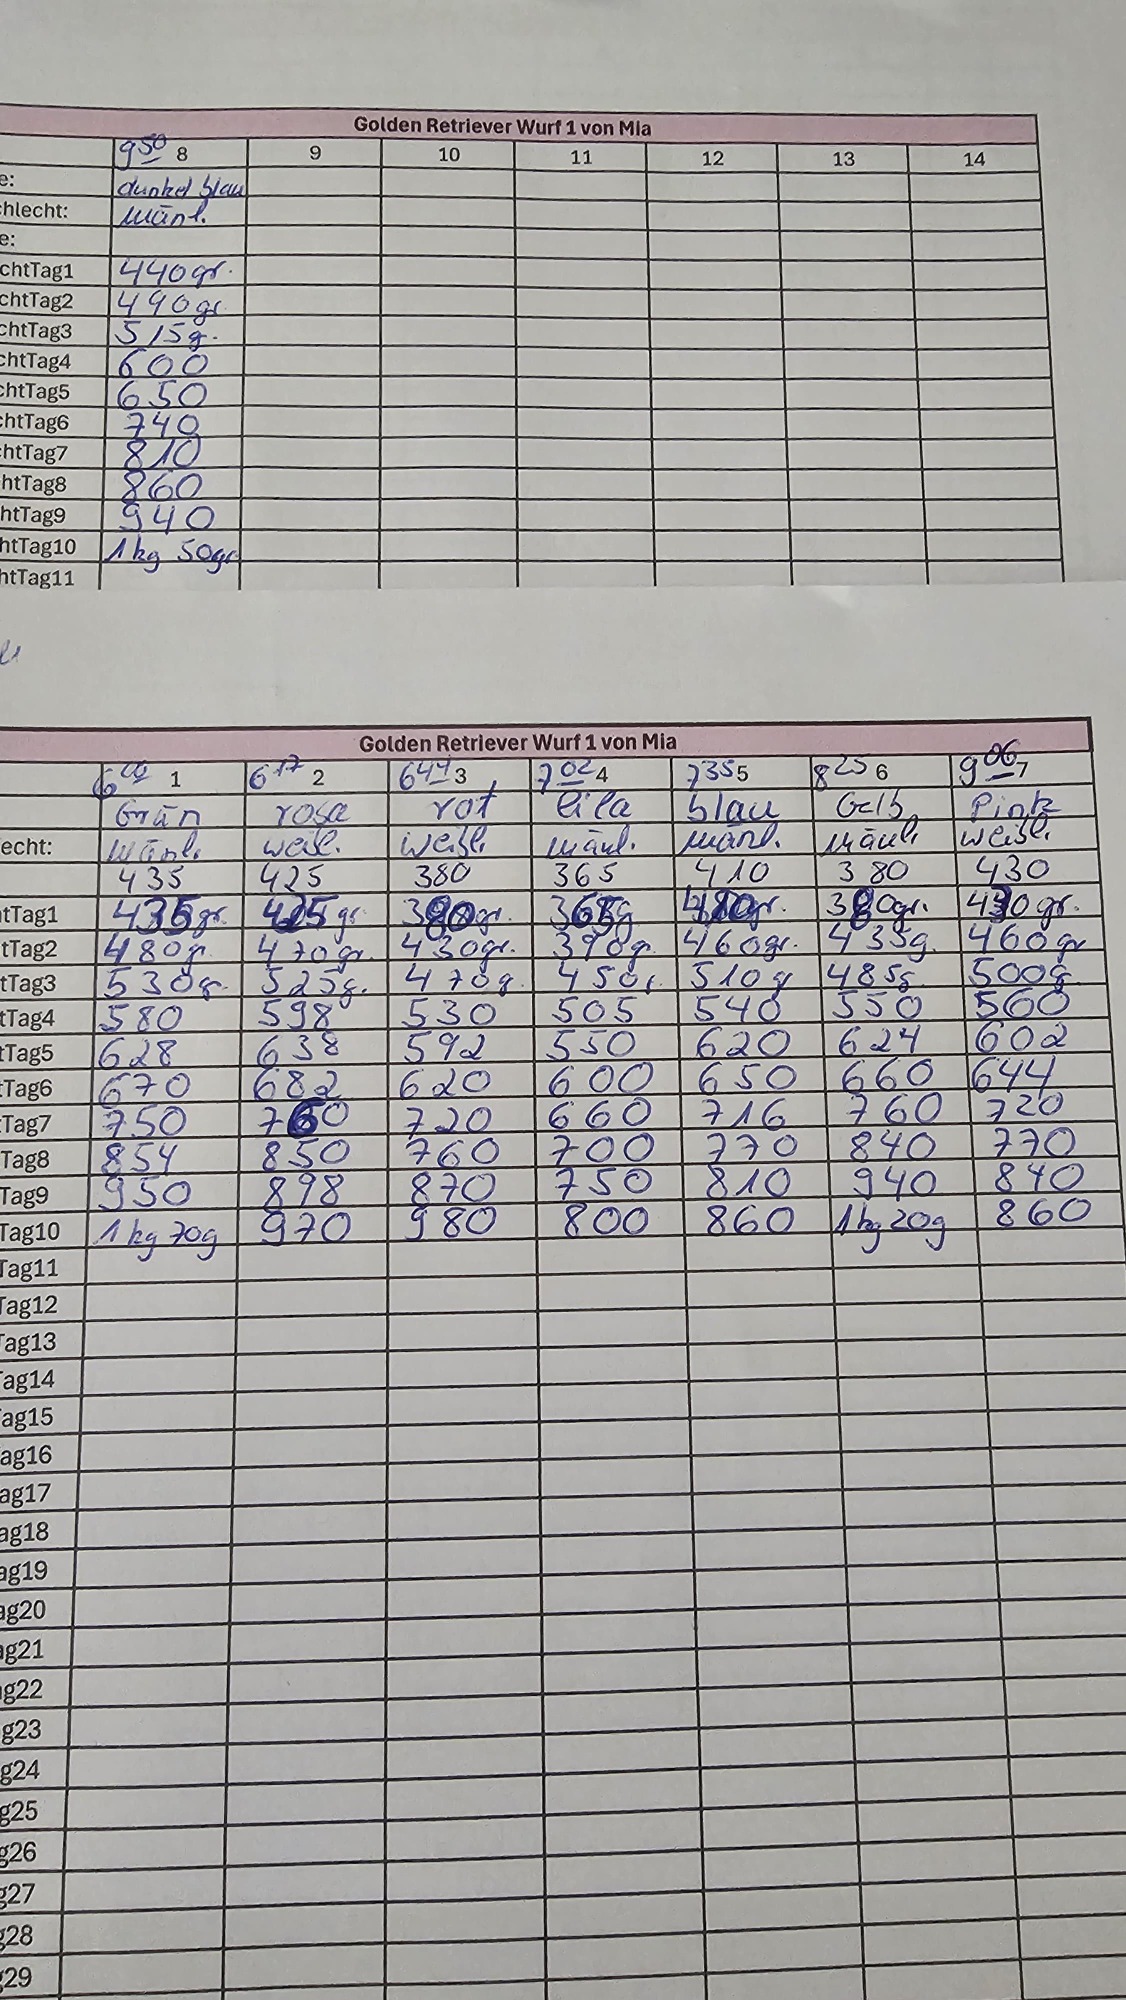 Golden Retriever Wurf 1 von Mia
9 50 8 9 10 11 12 13 14
e: dunkel blau
chlecht: mänl.
e:
chtTag1 440gr.
chtTag2 490gr.
chtTag3 515g.
chtTag4 600
chtTag5 650
chtTag6 740
chtTag7 810
htTag8 860
htTag9 940
htTag10 1kg 50gr
htTag11
Golden Retriever Wurf 1 von Mia
1 6 17 2 6 44 3 7 02 4 7 35 5 8 25 6 9 06 7
Grün rosa rot lila blau Gelb Pink
echt: mänl. weil. weibl. mänl. mänl. mänl. weibl.
435 425 380 365 410 380 430
tTag1 435gr. 425gr. 380gr. 365g 410gr. 380gr. 430gr.
tTag2 480gr. 470gr. 430gr. 390g. 460gr. 435g. 460gr
tTag3 530gr. 525g. 470g. 450g. 510g 485g 500g
tTag4 580 598 530 505 540 550 560
tTag5 628 638 592 550 620 624 602
tTag6 670 682 620 600 650 660 644
Tag7 750 760 720 660 716 760 720
Tag8 854 850 760 700 770 840 770
Tag9 950 898 870 750 810 940 840
Tag10 1kg 70g 970 980 800 860 1kg 20g 860
Tag11
Tag12
Tag13
Tag14
ag15
ag16
ag17
ag18
ag19
ag20
g21
g22
g23
g24
g25
g26
g27
g28
g29